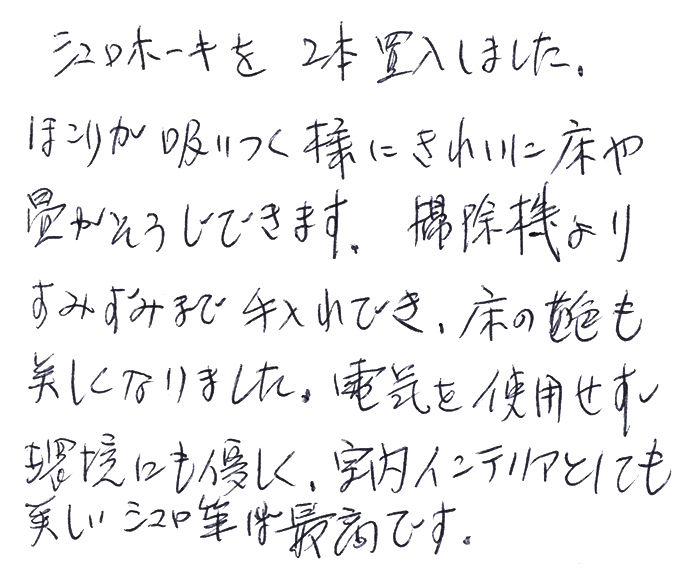 シュロホーキを 2本買入しました。
ほこりが吸いつく様にきれいに床や
畳がそうじできます。掃除機より
すみずみまで手入れでき、床の艶も
美しくなりました。電気を使用せず
環境にも優しく、室内インテリアとしても
美しいシュロ箒は最高です。